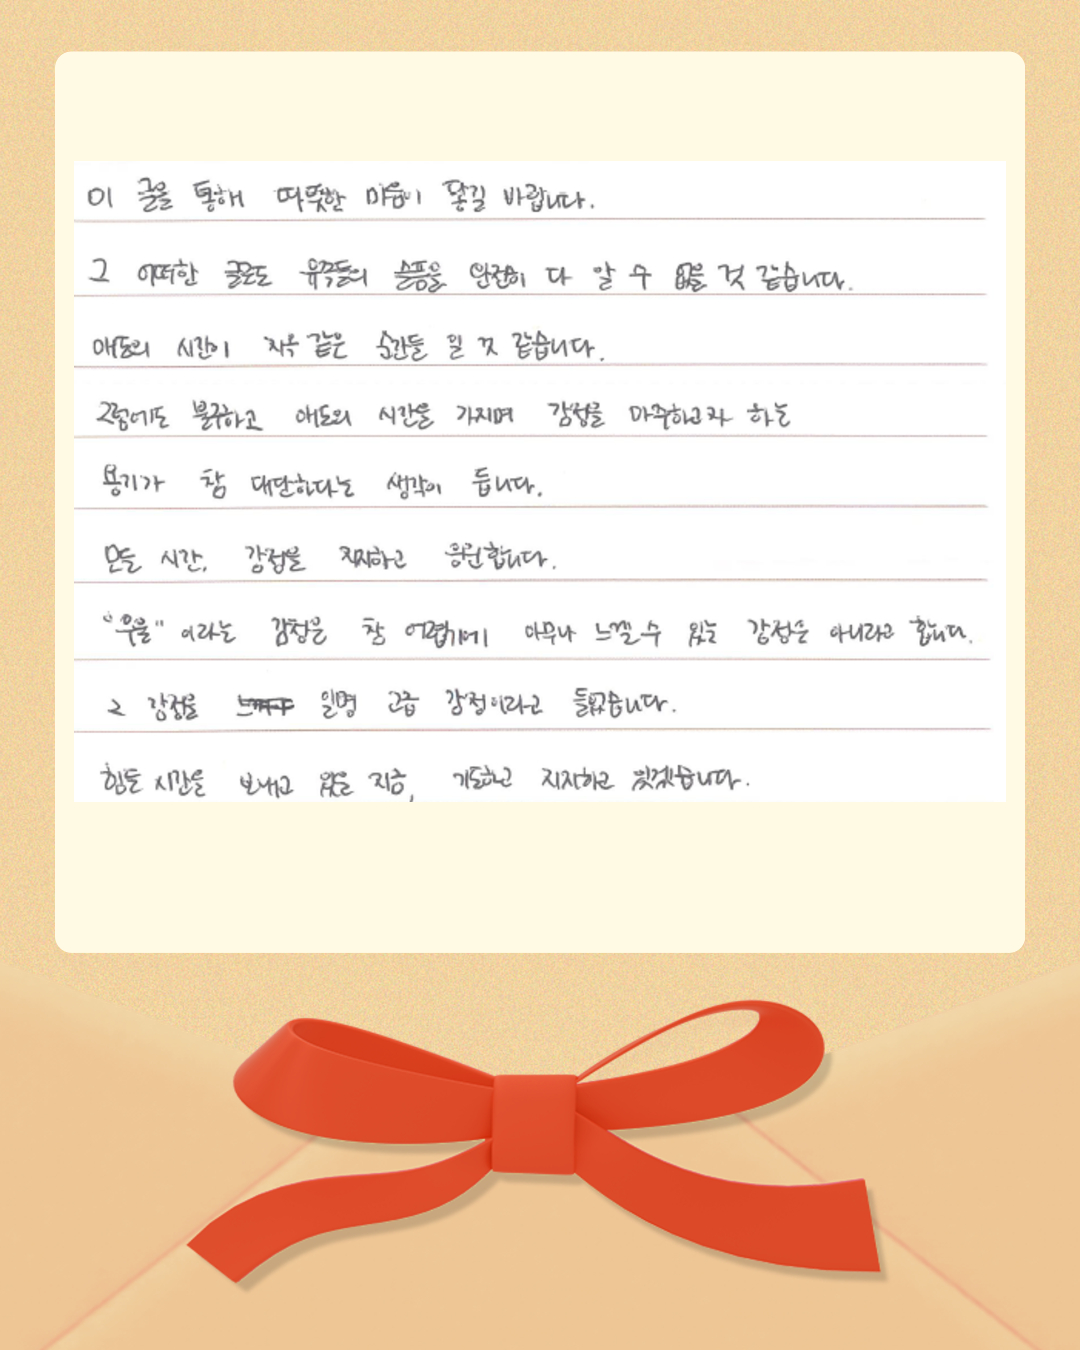 이 글을 통해 따뜻한 마음이 닿길 바랍니다.
그 어떠한 글로도 유족들의 슬픔을 완전히 다 알 수 없을 것 같습니다.
애도의 시간이 지옥 같은 순간들 일 것 같습니다.
그럼에도 불구하고 애도의 시간을 가지며 감정을 마주하고자 하는
용기가 참 대단하다는 생각이 듭니다.
모든 시간, 감정을 지지하고 응원합니다.
"우울" 이라는 감정은 참 어렵기에 아무나 느낄 수 있는 감정은 아니라고 합니다.
그 감정을 일명 고급 감정이라고 들었습니다.
힘든 시간을 보내고 있을 지금, 기도하고 지지하고 있겠습니다.